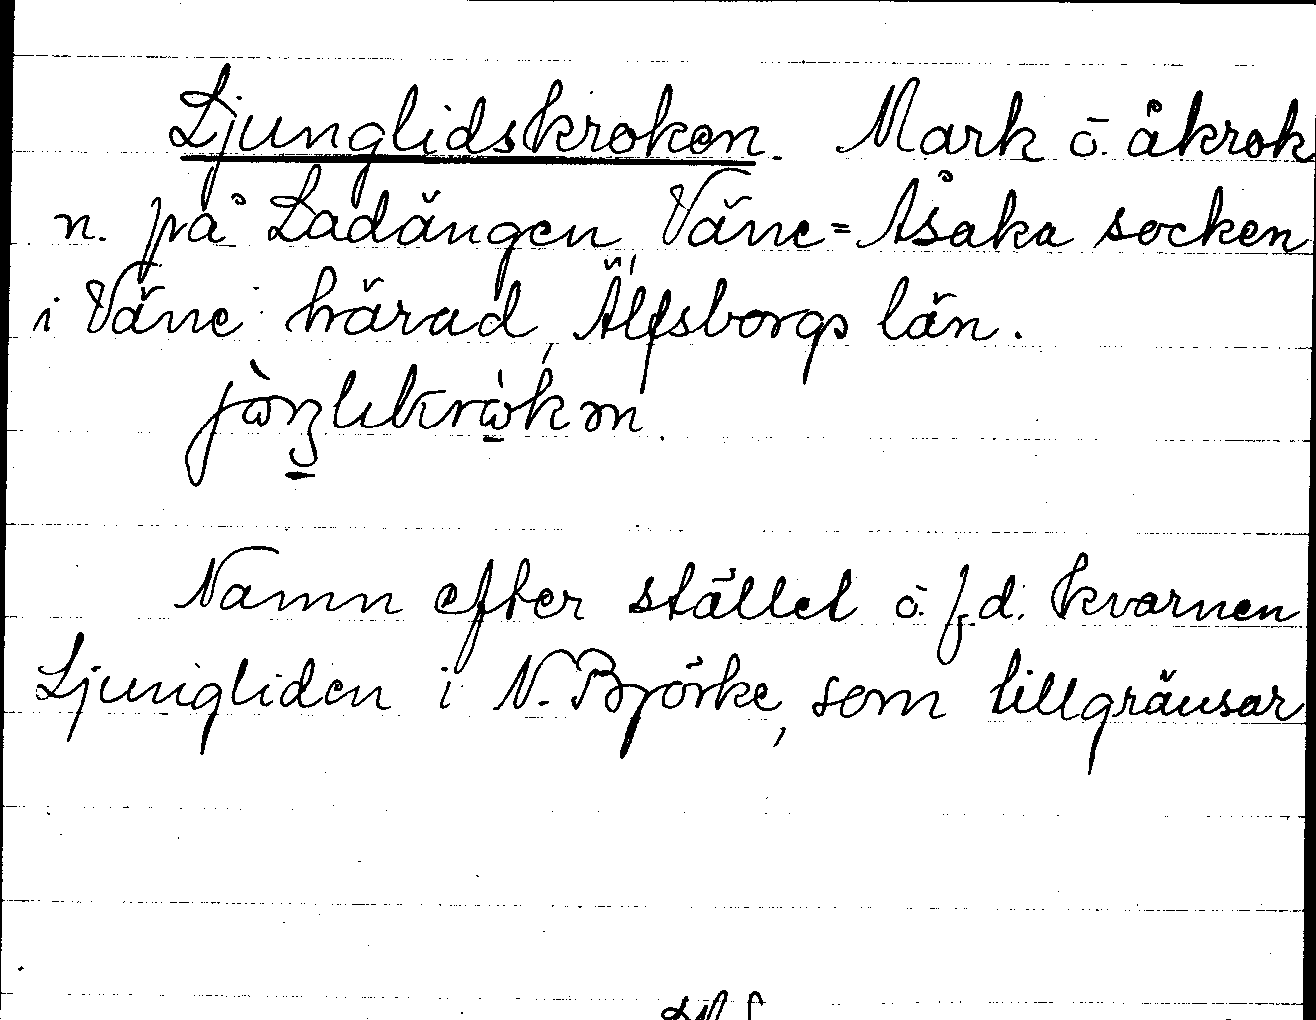 Ljunglidskroken. Mark ō. åkrok
n. på Ladängen Väne=Åsaka socken
i Väne härad, Älfsborgs län.
Namn efter stället ō. f.d. kvarnen
Ljungliden i N. Björke, som tillgränsar